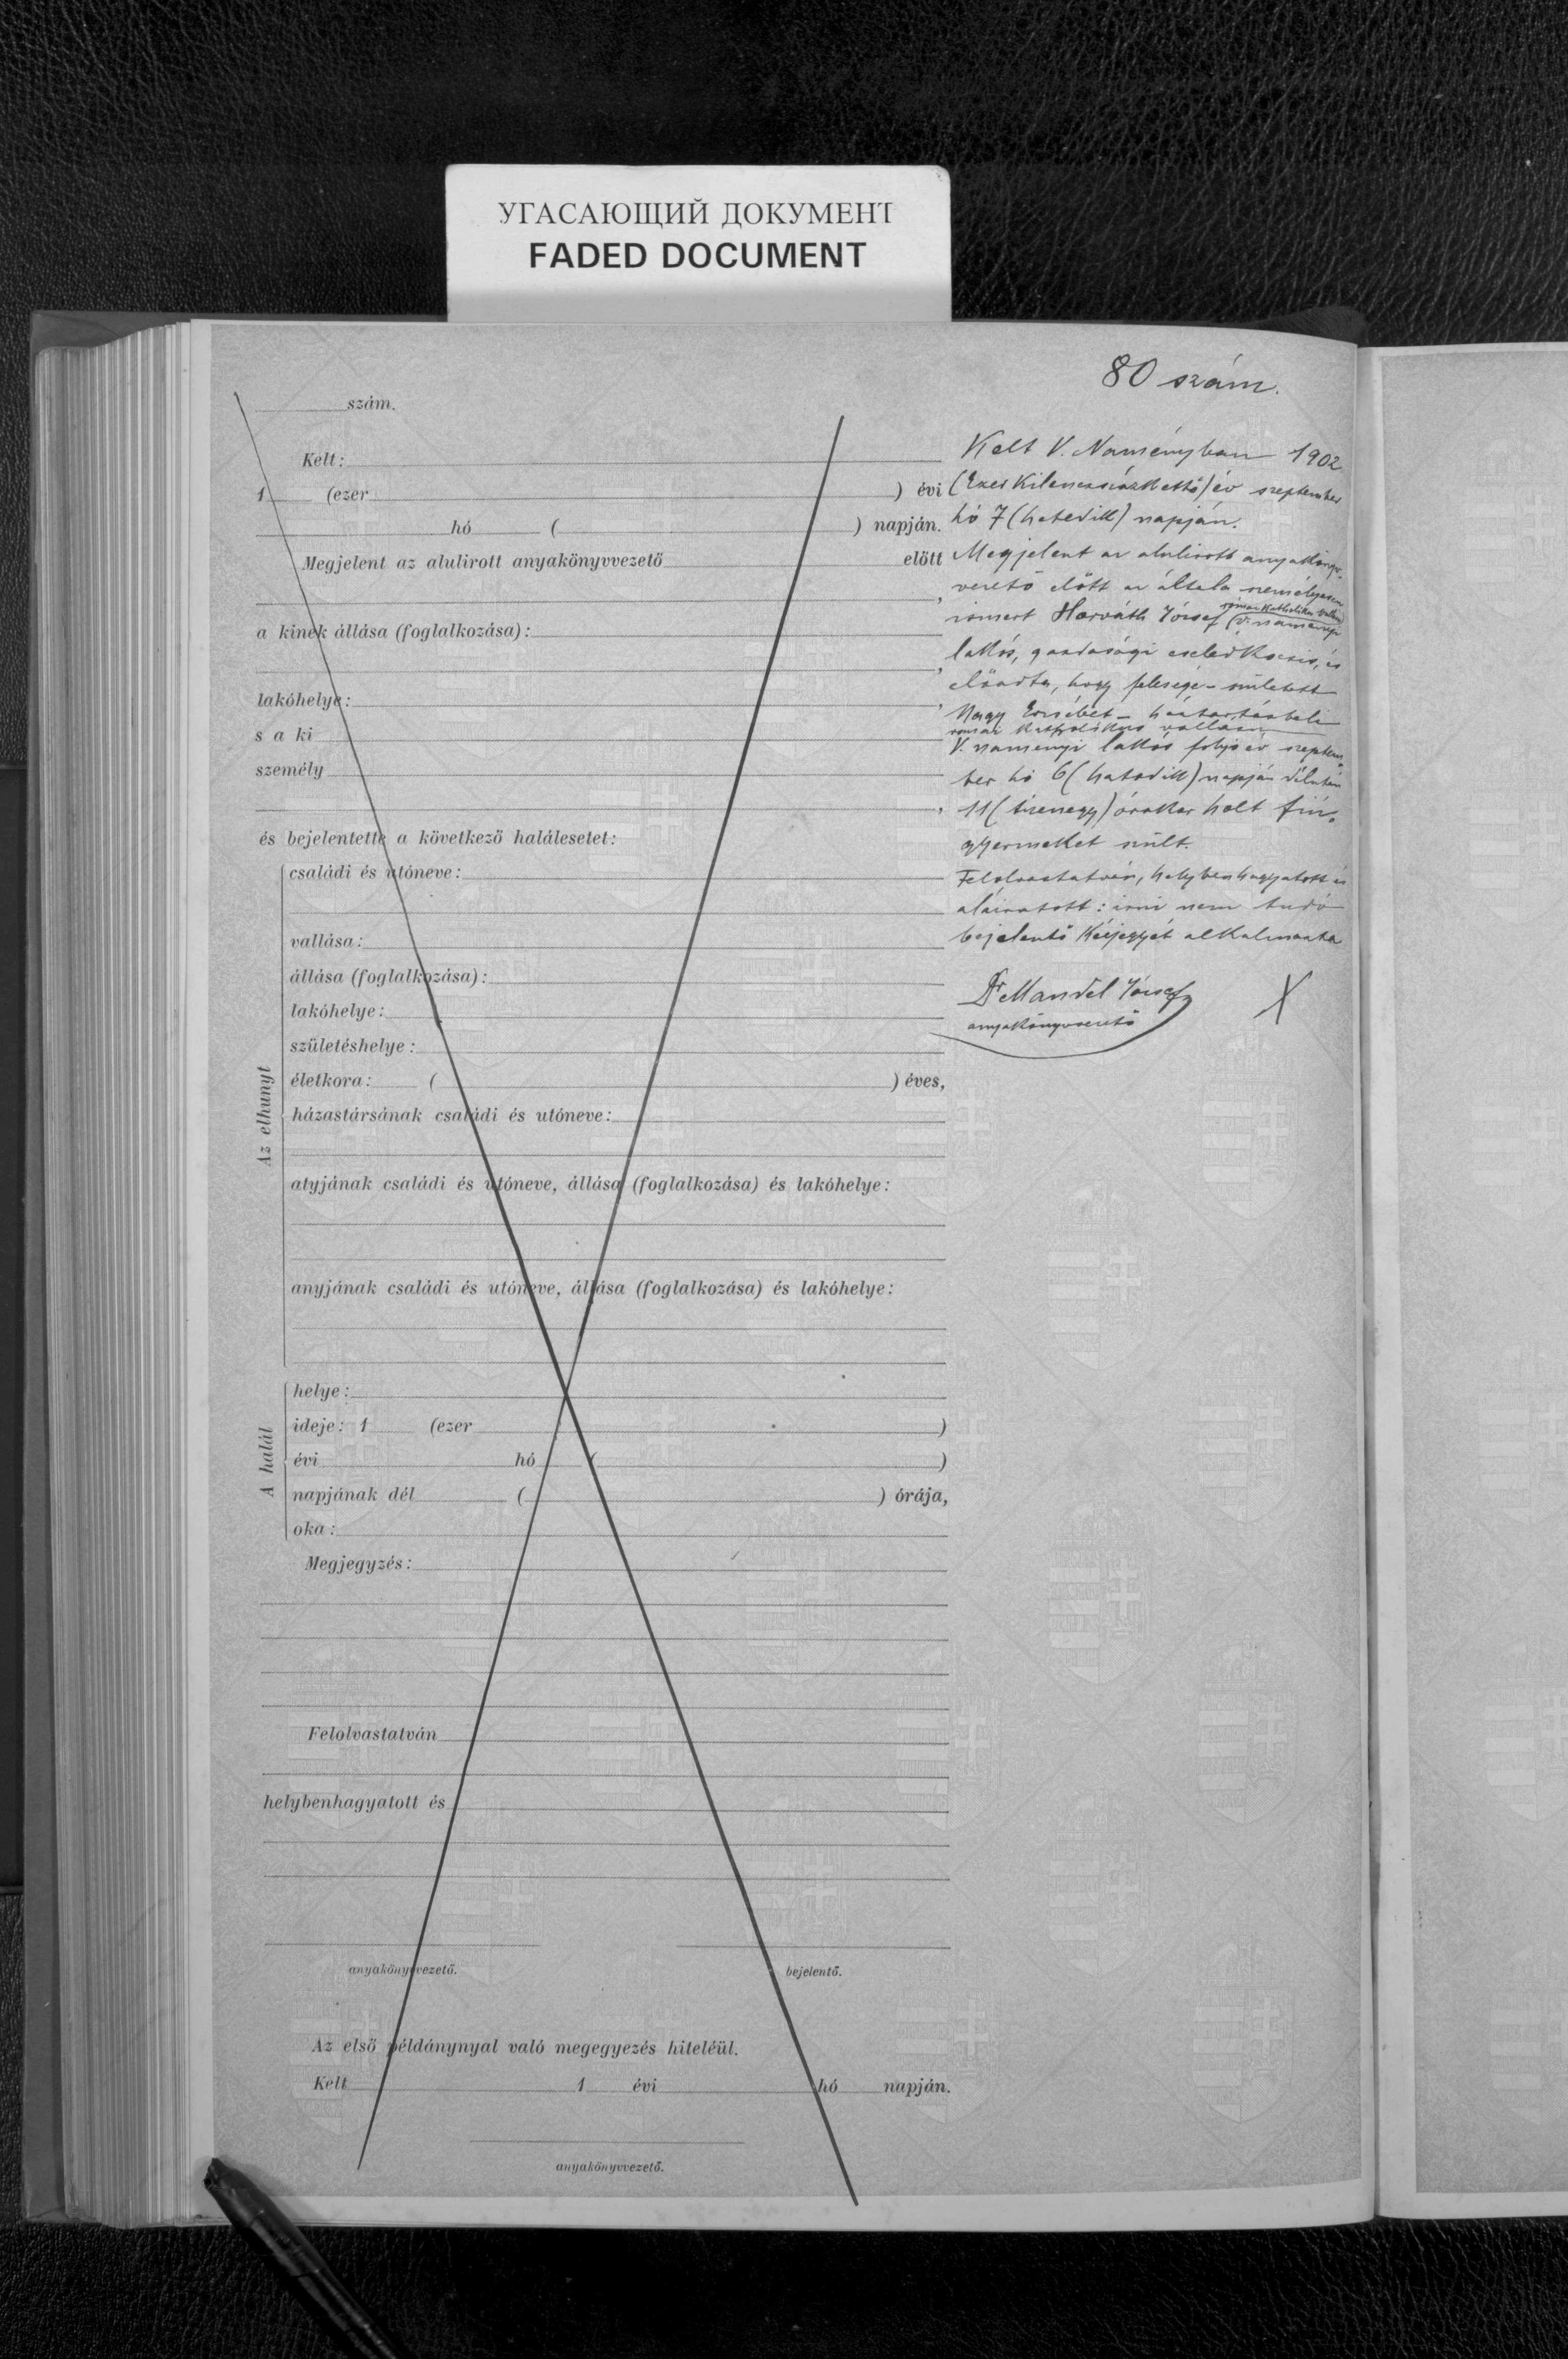 УГАСАЮЩИЙ ДОКУМЕНТ
FADED DOCUMENT
80 szám.
szám.
Kelt:
1 (ezer ) évi
hó ( ) napján.
Megjelent az alulirott anyakönyvvezető előtt
,
a kinek állása (foglalkozása):
,
lakóhelye: ,
s a ki
személy
,
és bejelentette a következő halálesetet:
Az elhunyt
családi és utóneve:
vallása:
állása (foglalkozása):
lakóhelye:
születéshelye:
életkora: ( ) éves,
házastársának családi és utóneve:
atyjának családi és utóneve, állása (foglalkozása) és lakóhelye:
anyjának családi és utóneve, állása (foglalkozása) és lakóhelye:
A halál
helye:
ideje: 1 (ezer )
évi hó ( )
napjának dél ( ) órája,
oka:
Megjegyzés:
Felolvastatván
helybenhagyatott és
anyakönyvvezető. bejelentő.
Az első példánynyal való megegyezés hiteléül.
Kelt 1 évi hó napján.
anyakönyvvezető.
Kelt V. Naményban 1902
(Ezer kilenczszázkettő) év szeptember
hó 7 (hetedik) napján.
Megjelent az alulirott anyakönyv-
vezető előtt az általa személyesen
római katholikus vallású
ismert Horváth József (V. naményi
lakós, gazdasági cselédkocsis, és
előadta, hogy felesége - született
Nagy Erzsébet - háztartásbeli
római katholikus vallású
V. naményi lakós folyó év szeptem
ber hó 6 (hatodik) napján délután
11 (tizenegy) órakor holt fiu
gyermeket szült.
Felolvastatván, helybenhagyatott és
aláiratott: irni nem tudó
bejelentő kézjegyét alkalmazta
Dr Mandel József X
anyakönyvvezető